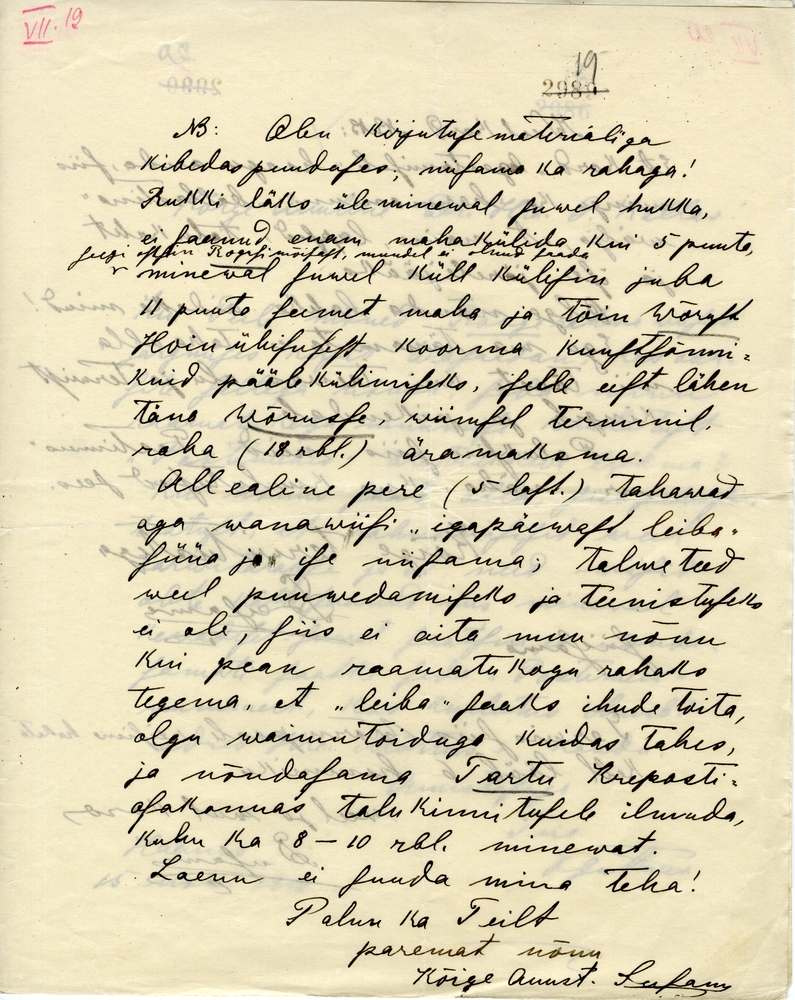 VII. 19
19
2989
NB: Olen kirjutuse materialiga
kibedas puuduses, niisama ka rahaga!
Rukki läks üle minewal suwel hukka,
ei saanud enam maha külida kui 5 puuta,
seegi ostsin Rogosi mõisast, muudel ei olnud saada
minewal suwel küll külisin juba
11 puuta seemet maha ja tõin Wõrust
Hoiu ühisusest koorma kunstsõnni-
kuid pääle külimiseks, selle eest lähen
täna Wõrusse, wiimsel terminil,
raha (18 rbl.) ära maksma.
All ealine pere (5 last.) tahawad
aga wanawiisi „igapäewast leiba"
süüa ja ise niisama; talwe teed
weel puuwedamiseks ja teenistuseks
ei ole, siis ei aita muu nõuu
kui pean raamatukogu rahaks
tegema, et „leiba" saaks ihude toita,
olgu waimutoiduga kuidas tahes,
ja nõndasama Tartu Kreposti-
osakonnas talukinnitusele ilmuda,
kuhu ka 8 — 10 rbl. minewat.
Laenu ei suuda mina teha!
Palun ka Teilt
paremat nõuu
Kõige Auust.